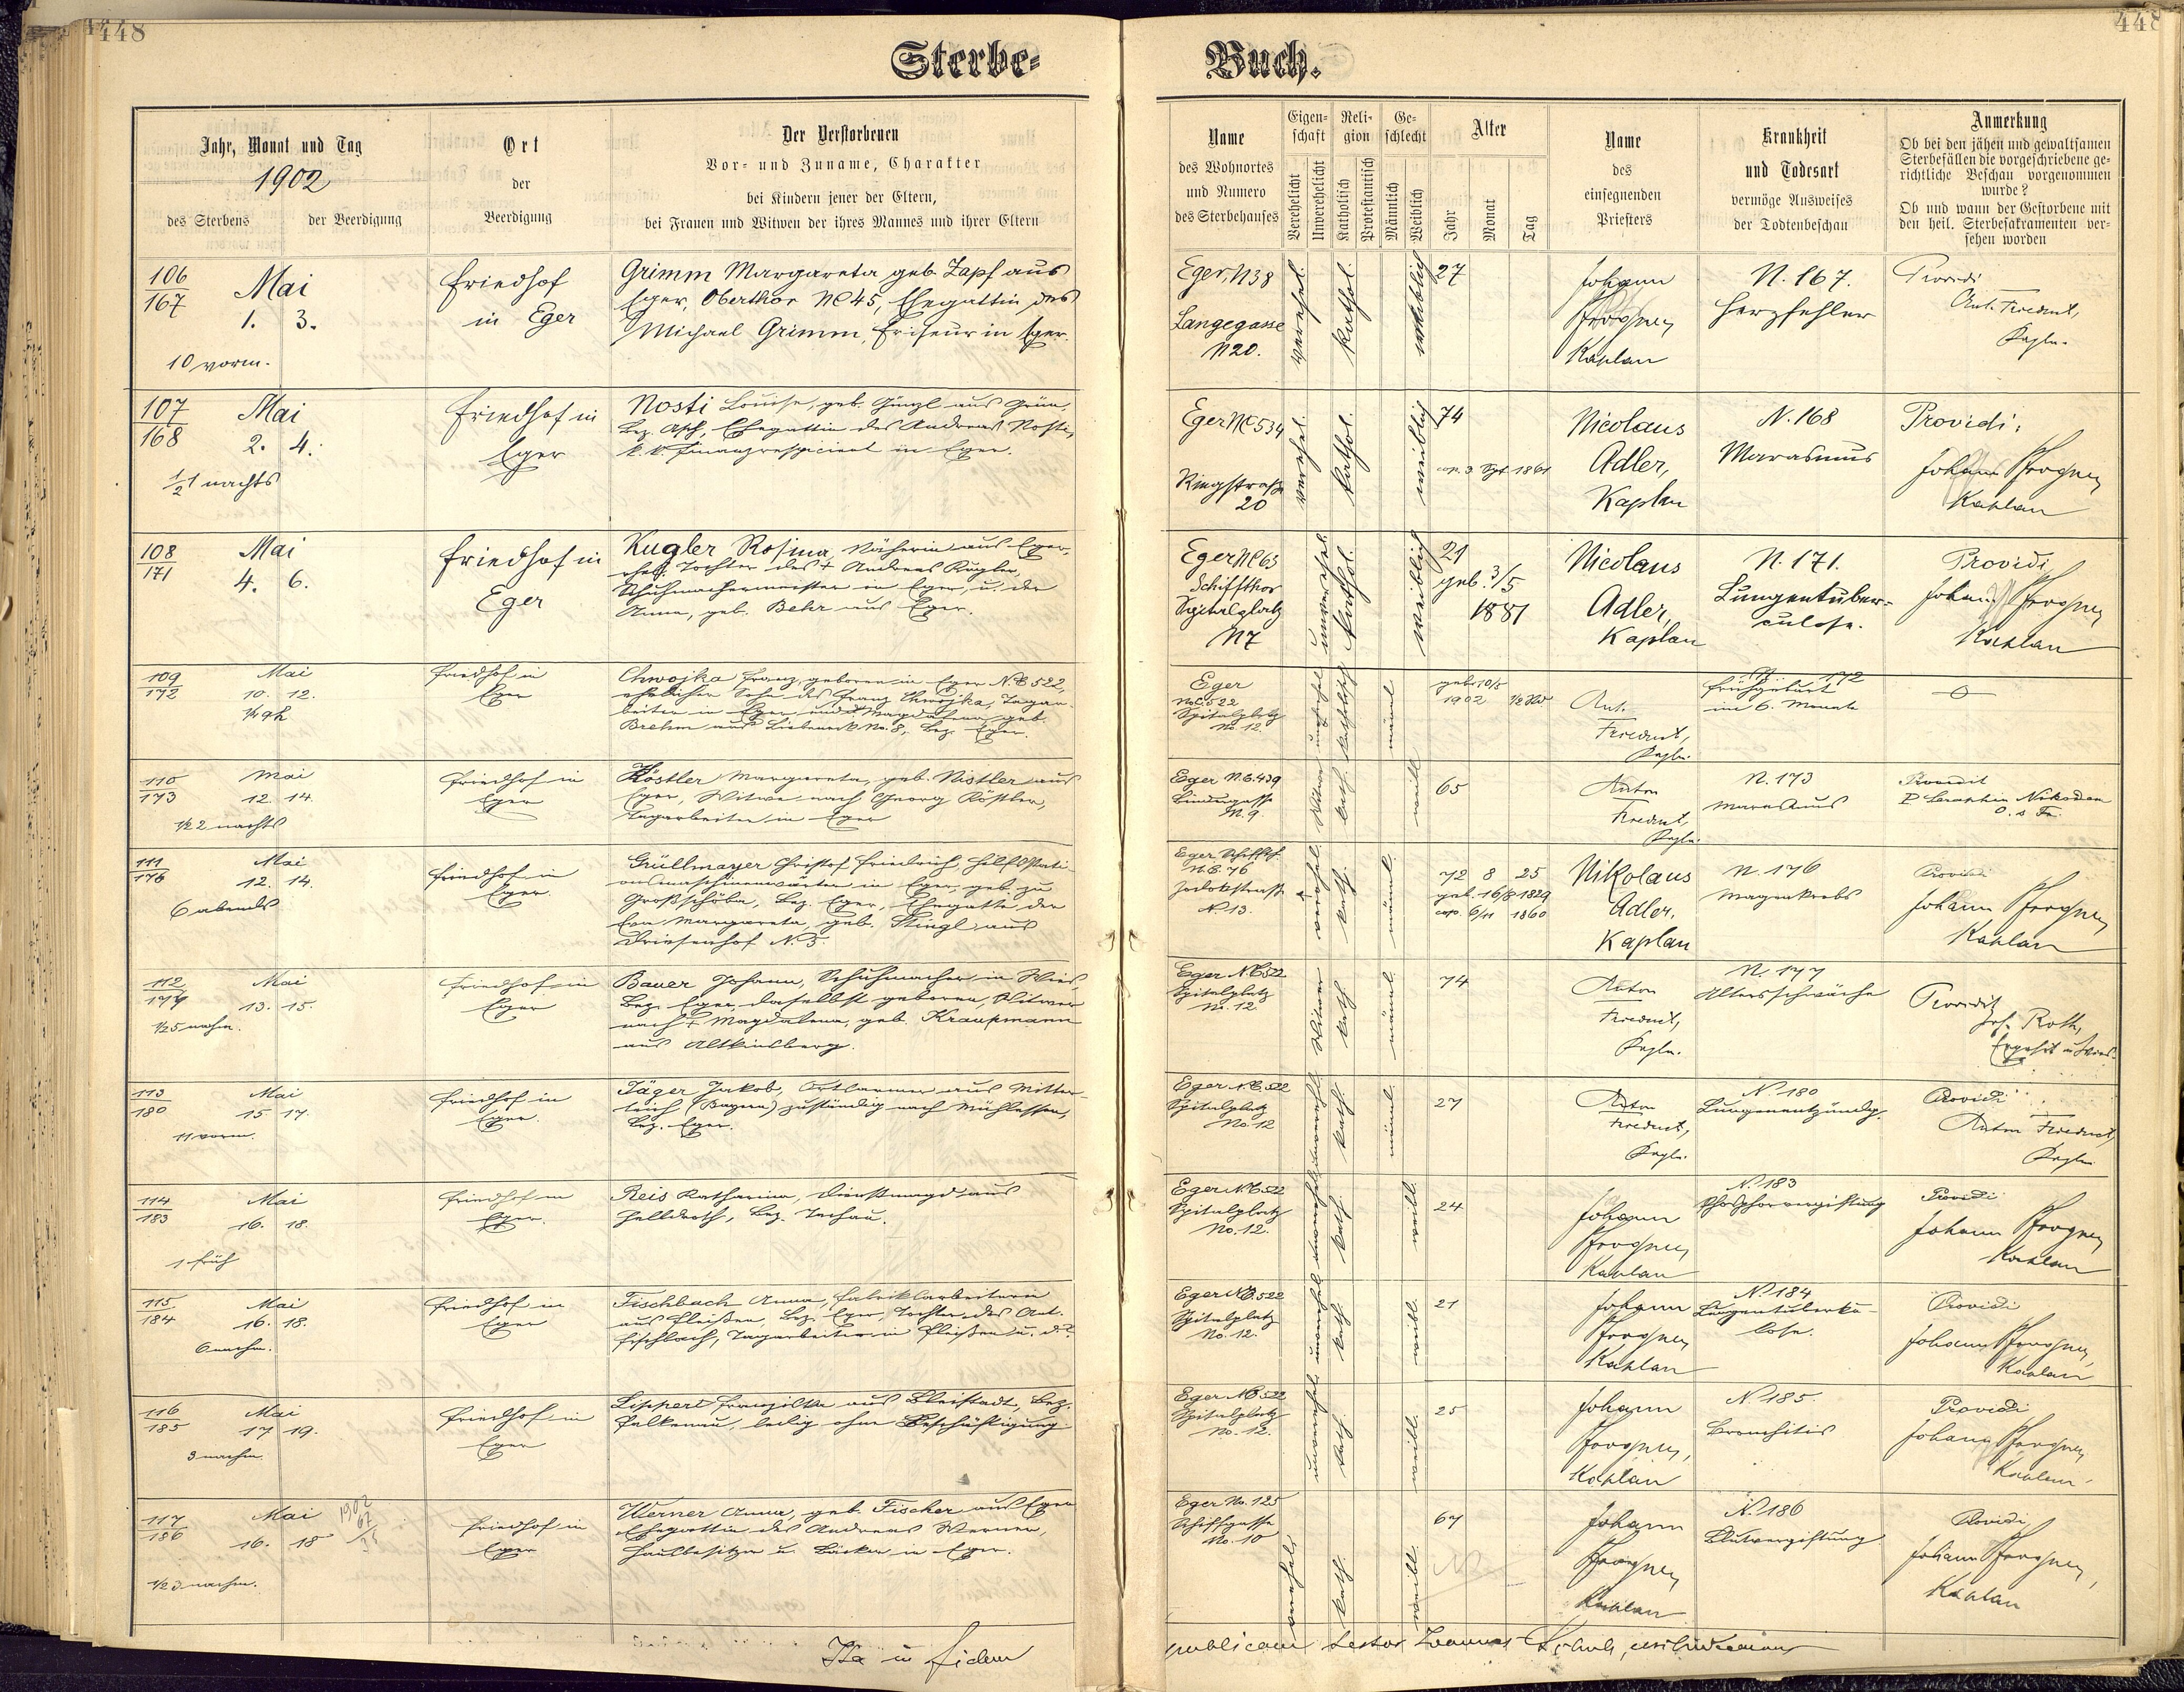 448
448
Sterbe-
Buch.
Jahr, Monat und Tag
1902
des Sterbens
der Beerdigung
Ort
der
Beerdigung
Der Verstorbenen
Vor- und Zuname, Charakter
bei Kindern jener der Eltern,
bei Frauen und Witwen der ihres Mannes und ihrer Eltern
Name
des Wohnortes
und Numero
des Sterbehauses
Eigen-
schaft
Verehelicht
Unverehelicht
Reli-
gion
Katholisch
Protestantisch
Ge-
schlecht
Männlich
Weiblich
Alter
Jahr
Monat
Tag
Name
des
einsegnenden
Priesters
Krankheit
und Todesart
vermöge Ausweises
der Todtenbeschau
Anmerkung
Ob bei den jähen und gewaltsamen
Sterbefällen die vorgeschriebene ge-
richtliche Beschau vorgenommen
wurde?
Ob und wann der Gestorbene mit
den heil. Sterbesakramenten ver-
sehen worden
106
167
Mai
1. 3.
10 vorm.
Friedhof
in Eger
Grimm Margareta geb. Zapf aus
Eger, Oberthor NC 45, Ehegattin des
Michael Grimm, Friseur in Eger.
Eger, N 38
Langegasse
N 20.
verehel.
kathol.
weiblich
27
Johann
Kaplan
N. 167.
Herzfehler
Providi
Ant.
107
168
Mai
2. 4.
1/2 1 nachts
Friedhof in
Eger
Nosti Louise, geb. Günzl aus Grün,
Bez. Asch, Ehegattin des Andreas Nosti,
k. k. Finanzrespicient in Eger.
Eger NC 534
Ringstraße
20
verehel.
kathol.
weiblich
74
cop. 3. Spt 1861
Nicolaus
Adler,
Kaplan
N. 168
Marasmus
Providi:
Johann
Kaplan
108
171
Mai
4. 6.
Friedhof in
Eger
Kugler Rosina, Näherin aus Eger,
ehel. Tochter des † Andreas Kugler,
Schuhmachermeister in Eger, u. der
Anna, geb. Behr aus Eger.
Eger NC 63
Schiffthor
Spitalplatz
N 7
unverehel.
kathol.
weiblich
21
geb. 3/5
1881
Nicolaus
Adler,
Kaplan
N. 171.
Lungentuber-
culose.
Providi
Johann
Kaplan
109
172
Mai
10. 12.
1/4 9 h
Friedhof in
Eger
Chwojka Franz, geboren in Eger NC 522,
ehelicher Sohn des Franz Chwojka, Tagar-
beiter in Eger und der Magdalena, geb.
Brehm aus Liebeneck No. 8, Bez. Eger.
Eger
NC. 522
Spitalplatz
No. 12.
katholisch
männl.
geb. 10/5
1902
Ant.
N. 172
Frühgeburt
im 6. Monate
110
173
Mai
12. 14.
1/2 2 nachts
Friedhof in
Eger
Köstler Margareta, geb. Nistler aus
Eger, Witwe nach Georg Köstler,
Tagarbeiter in Eger
Eger N.C. 439
N. 9.
Witwe
kath.
weibl.
65
Anton
N. 173
Marasmus
Providit
P. Seraphin Nikodem
O. s. Fr.
111
176
Mai
12. 14.
6 abends
Friedhof in
Eger.
Grüllmayer Christof Friedrich, Hilfsstati-
onsmaschinenwärter in Eger, geb. zu
Großschöba, Bez. Eger, Ehegatte der
Eva Margareta, geb. Stingl aus
Driesenhof N. 5.
Eger, Schiffth.
N.C. 76
N. 13.
verehel.
kath.
männl.
72 8 25
geb. 16/8 1829
cop. 6/11 1860
Nikolaus
Adler,
Kaplan
N. 176
Magenkrebs
Providi
Johann
Kaplan
112
177
Mai
13. 15.
1/2 5 nachm.
Friedhof in
Eger
Bauer Johann, Schuhmacher in Wies
Bez. Eger, daselbst geboren, Witwer
nach † Magdalena, geb. Kraupmann
aus Altkinsberg.
Eger NC 522
Spitalplatz
N. 12
Witwer
kath.
männl.
74
Anton
N. 177
Altersschwäche
Providit
Jos. Roth,
113
180
Mai
15 17.
11 vorm.
Friedhof in
Eger.
Jäger Jakob, Ortsarmer aus Mitter-
teich (Bayern) zuständig nach Mühlessen,
Bez. Eger.
Eger N.C. 522
Spitalplatz
No. 12
unverehl.
kath.
männl.
27
Anton
N. 180
Lungenentzündg.
Providi
Anton
114
183
Mai
16. 18.
1 früh
Friedhof in
Eger.
Reis Katharina, Dienstmagd aus
Helldroth, Bez. Tachau.
Eger N.C. 522
Spitalplatz
No. 12.
unverehel.
kath.
weibl.
24
Johann
Kaplan
N. 183
Phosphorvergiftung
Providi
Johann
Kaplan
115
184
Mai
16. 18.
6 nachm.
Friedhof in
Eger
Fischbach Anna, Fabriksarbeiterin
aus Fleißen, Bez. Eger, Tochter des Ant.
Fischbach, Tagarbeiter in Fleißen u. d.
Eger NC. 522
Spitalplatz
No. 12.
unverehel.
kath.
weibl.
21
Johann
Kaplan
N. 184
Lungentuberku-
lose.
Providi
Johann
Kaplan
116
185
Mai
17 19.
3 nachm.
Friedhof in
Eger
Lippert Franziska aus Bleistadt, Bez.
Falkenau, ledig ohne Beschäftigung.
Eger NC 522
Spitalplatz
No. 12.
unverehel.
kath.
weibl.
25
Johann
Kaplan
N. 185.
Bronchitis
Providi
Johann
Kaplan
117
186
Mai
16. 18
1902
67
35
1/2 3 nachm.
Friedhof in
Eger
Werner Anna, geb. Fischer aus Eger
Ehegattin des Andreas Werner,
Hausbesitzer u. Bäcker in Eger.
Eger No. 125
Schiffgasse
No. 10
verehel.
kath.
weibl.
67
Johann
Kaplan
N. 186
Blutvergiftung
Providi
Johann
Kaplan
Ita in fidem
publicam testor Joannes